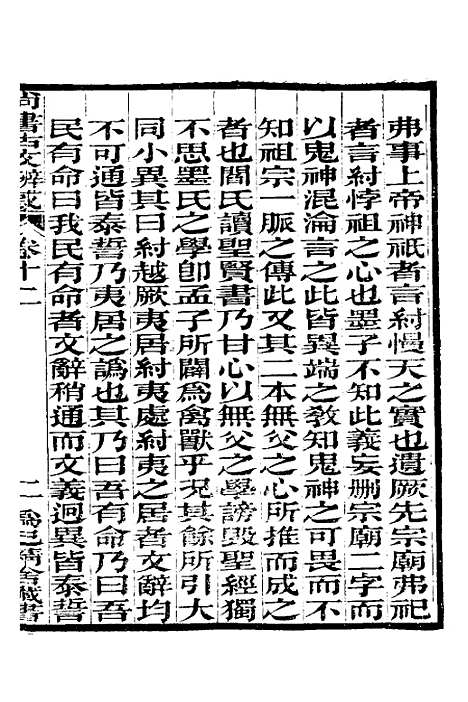 弗事上帝神祇者言紂慢天之實也遺厥先宗廟弗祀
者言紂悖祖之心也墨子不知此義妄删宗廟二字而
以鬼神混淪言之此皆異端之教知鬼神之可畏而不
知祖宗一脈之傳此又其二本無父之心所推而成之
者也閻氏讀聖賢書乃甘心以無父之學謗毁聖經獨
不思墨氏之學卽孟子所闢爲禽獸乎况其餘所引大
同小異其曰紂越厥夷居紂夷處紂夷之居者文辭均
不可通皆泰誓乃夷居之譌也其乃曰吾有命乃曰吾
民有命曰我民有命者文辭稍通而文義迥異皆泰誓
尚書古文辨惑 卷十二 二 爲己精舍藏書